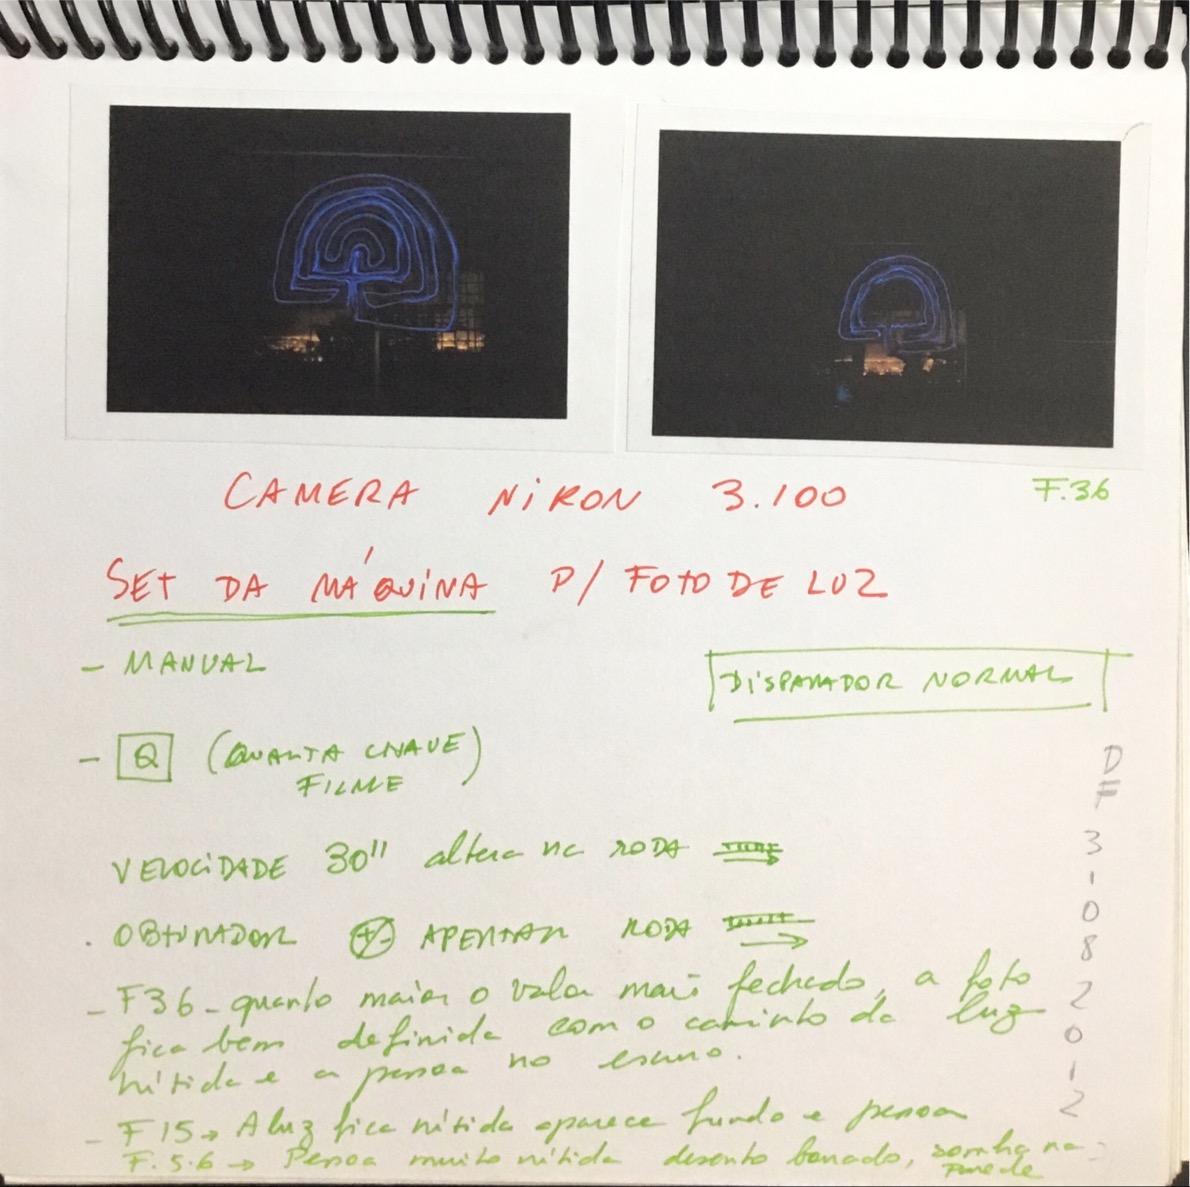 CAMERA NiKON 3.100 F.36
SET DA MÁQUINA P/ FOTO DE LUZ
- MANUAL
DISPARADOR NORMAL
- Q (QUANTA CHAVE)
FILME
VELOCIDADE 30" altera na RODA
. OBTURADOR +/- APERTAR RODA →
- F36 - quanto maior o valor mais fechado, a foto
fica bem definida com o caminho da luz
nítida e a pessoa no escuro.
- F15 → A luz fica nítida aparece fundo e pessoa
F. 5.6 → Pessoa muito nítida desenho borrado, sombra na
parede
D
F
3
-
0
8
2
0
1
2